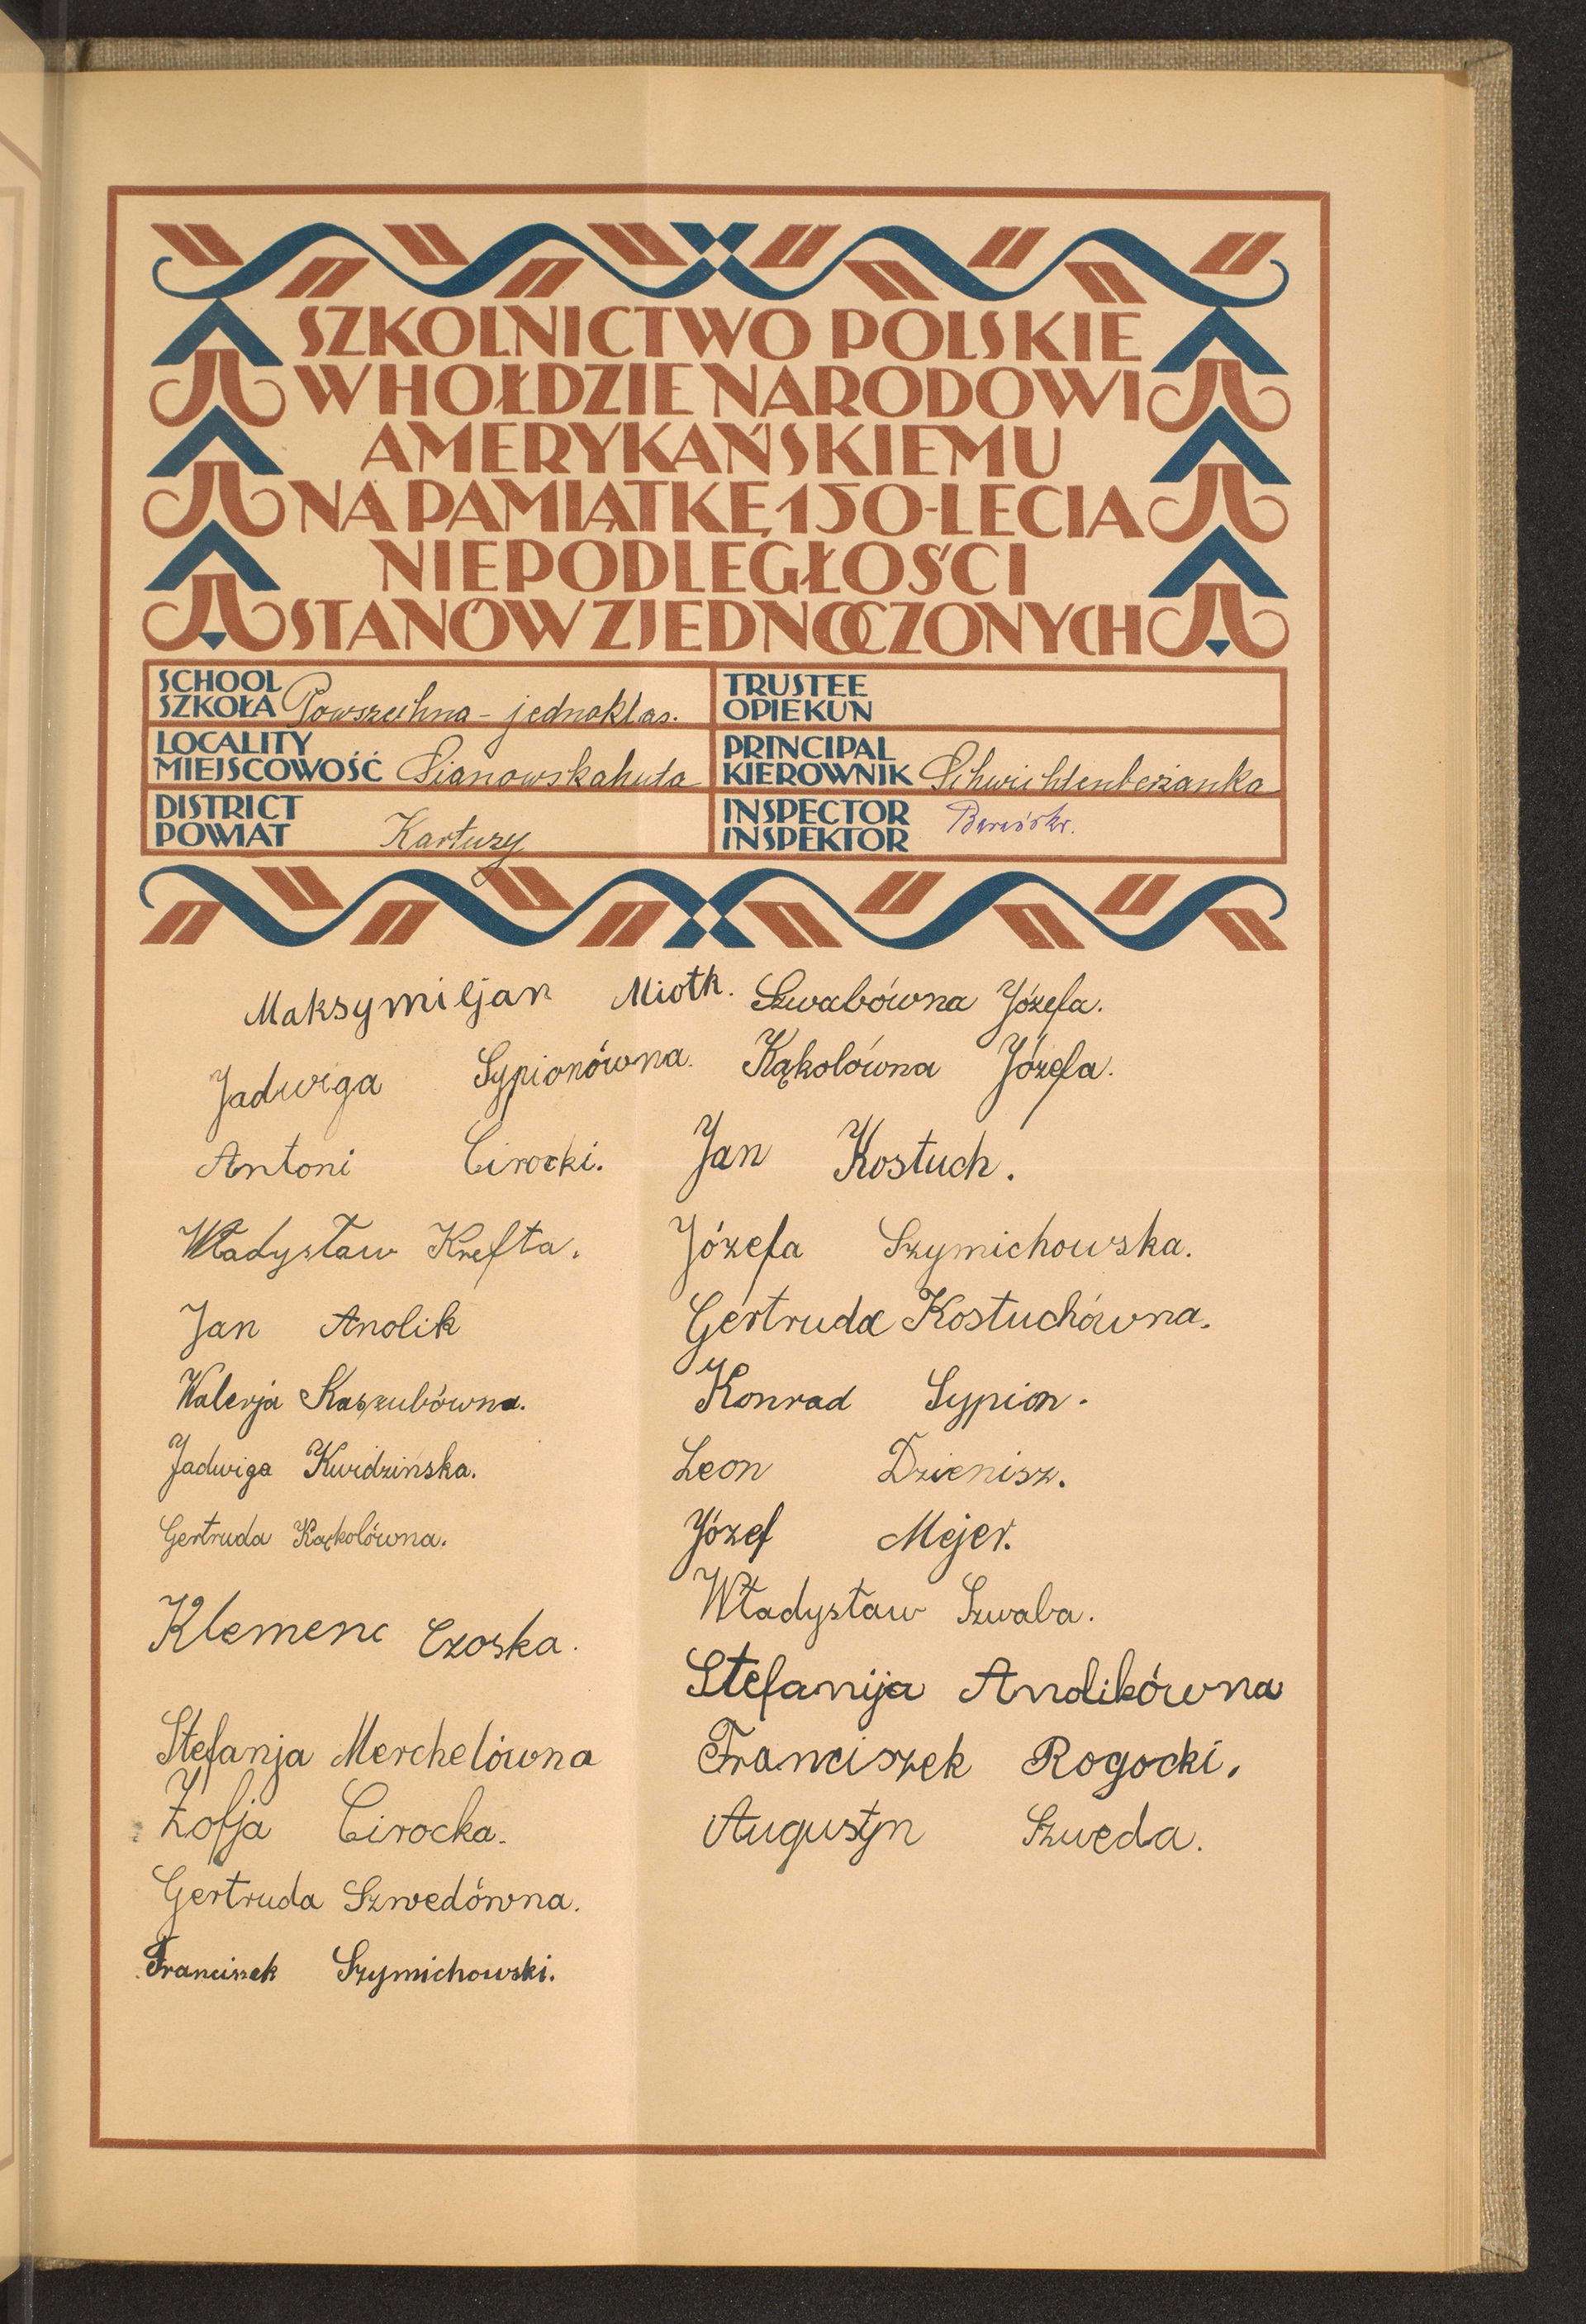 SZKOLNICTWO POLSKIE
W HOŁDZIE NARODOWI
AMERYKAŃSKIEMU
NA PAMIĄTKĘ 150-LECIA
NIEPODLEGŁOŚCI
STANÓW ZJEDNOCZONYCH
SCHOOL
SZKOŁA Powszechna - jednoklas.
LOCALITY
MIEJSCOWOŚĆ Sianowskahuta
DISTRICT
POWIAT Kartuzy
TRUSTEE
OPIEKUN
PRINCIPAL
KIEROWNIK Schwichtenberżanka
INSPECTOR
INSPEKTOR
Maksymiljan Mioth.
Jadwiga Sypionówna.
Antoni Cirocki.
Władysław Krefta.
Jan Anolik
Walerja Kaszubówna.
Jadwiga Kwidzińska.
Gertruda Kąkolówna.
Klemenc Czoska.
Stefanja Merchelówna
Zofja Cirocka.
Gertruda Szwedówna.
Franciszek Szymichowski.
Szwabówna Józefa.
Kąkolówna Józefa.
Jan Kostuch.
Józefa Szymichowska.
Gertruda Kostuchówna.
Konrad Sypion.
Leon Dzienisz.
Józef Mejer.
Władysław Szwaba.
Stefanija Anolikówna
Franciszek Rogocki.
Augustyn Szweda.